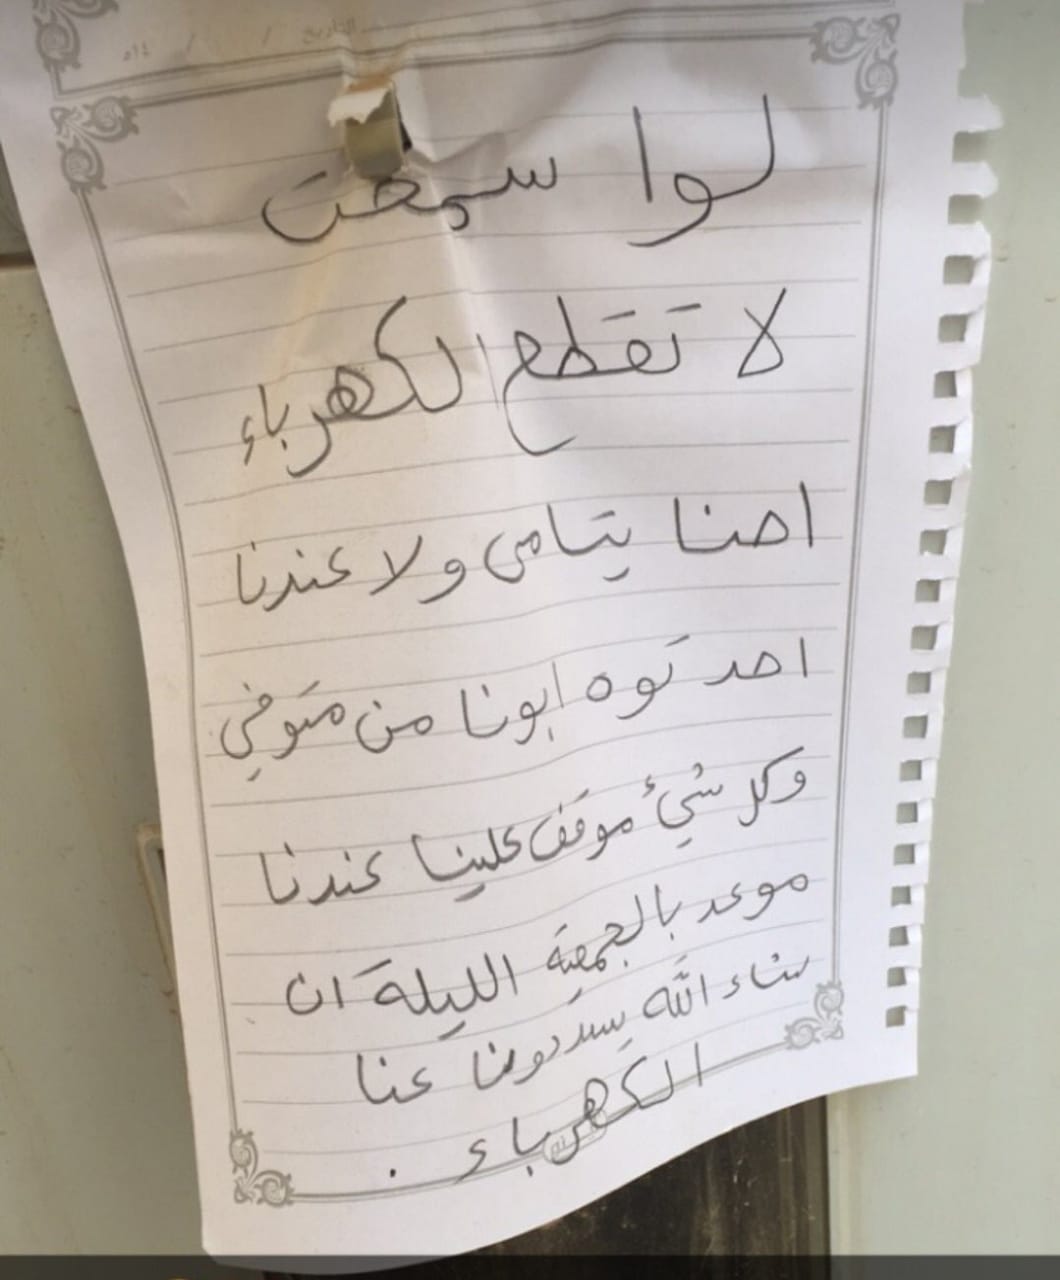 التاريخ / / ١٤هـ
لوا سمحت
لا تقطع الكهرباء
احنا يتامى ولا عندنا
احد توه ابونا من متوفي
وكل شيئ موقف علينا عندنا
موعد بالجمعية الليلة ان
شاء الله يسددوننا عنا
الكهرباء .